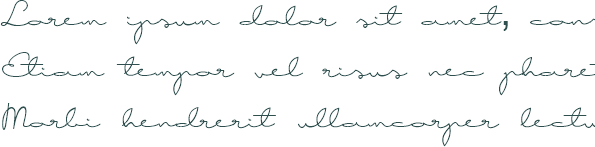 Lorem ipsum dolor sit amet, con
Etiam tempor vel risus nec pharet
Morbi hendrerit ullamcorper lectu